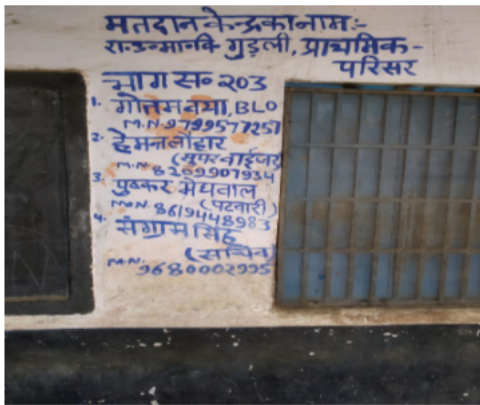 मतदान केन्द्र का नाम:-
रा.उ.मा.वि गुड़ली, प्राथमिक-
परिसर
भाग सं० २०३
1. गौतम बया, BLO
M.N. 9799577257
2. हेमन लौहार
(सुपरवाईजर)
M.N. 8209907934
3. पुष्कर मेघवाल
(पटवारी)
MoN. 8619448983
4. संग्राम सिंह
(सचिव)
M.N. 9680002995